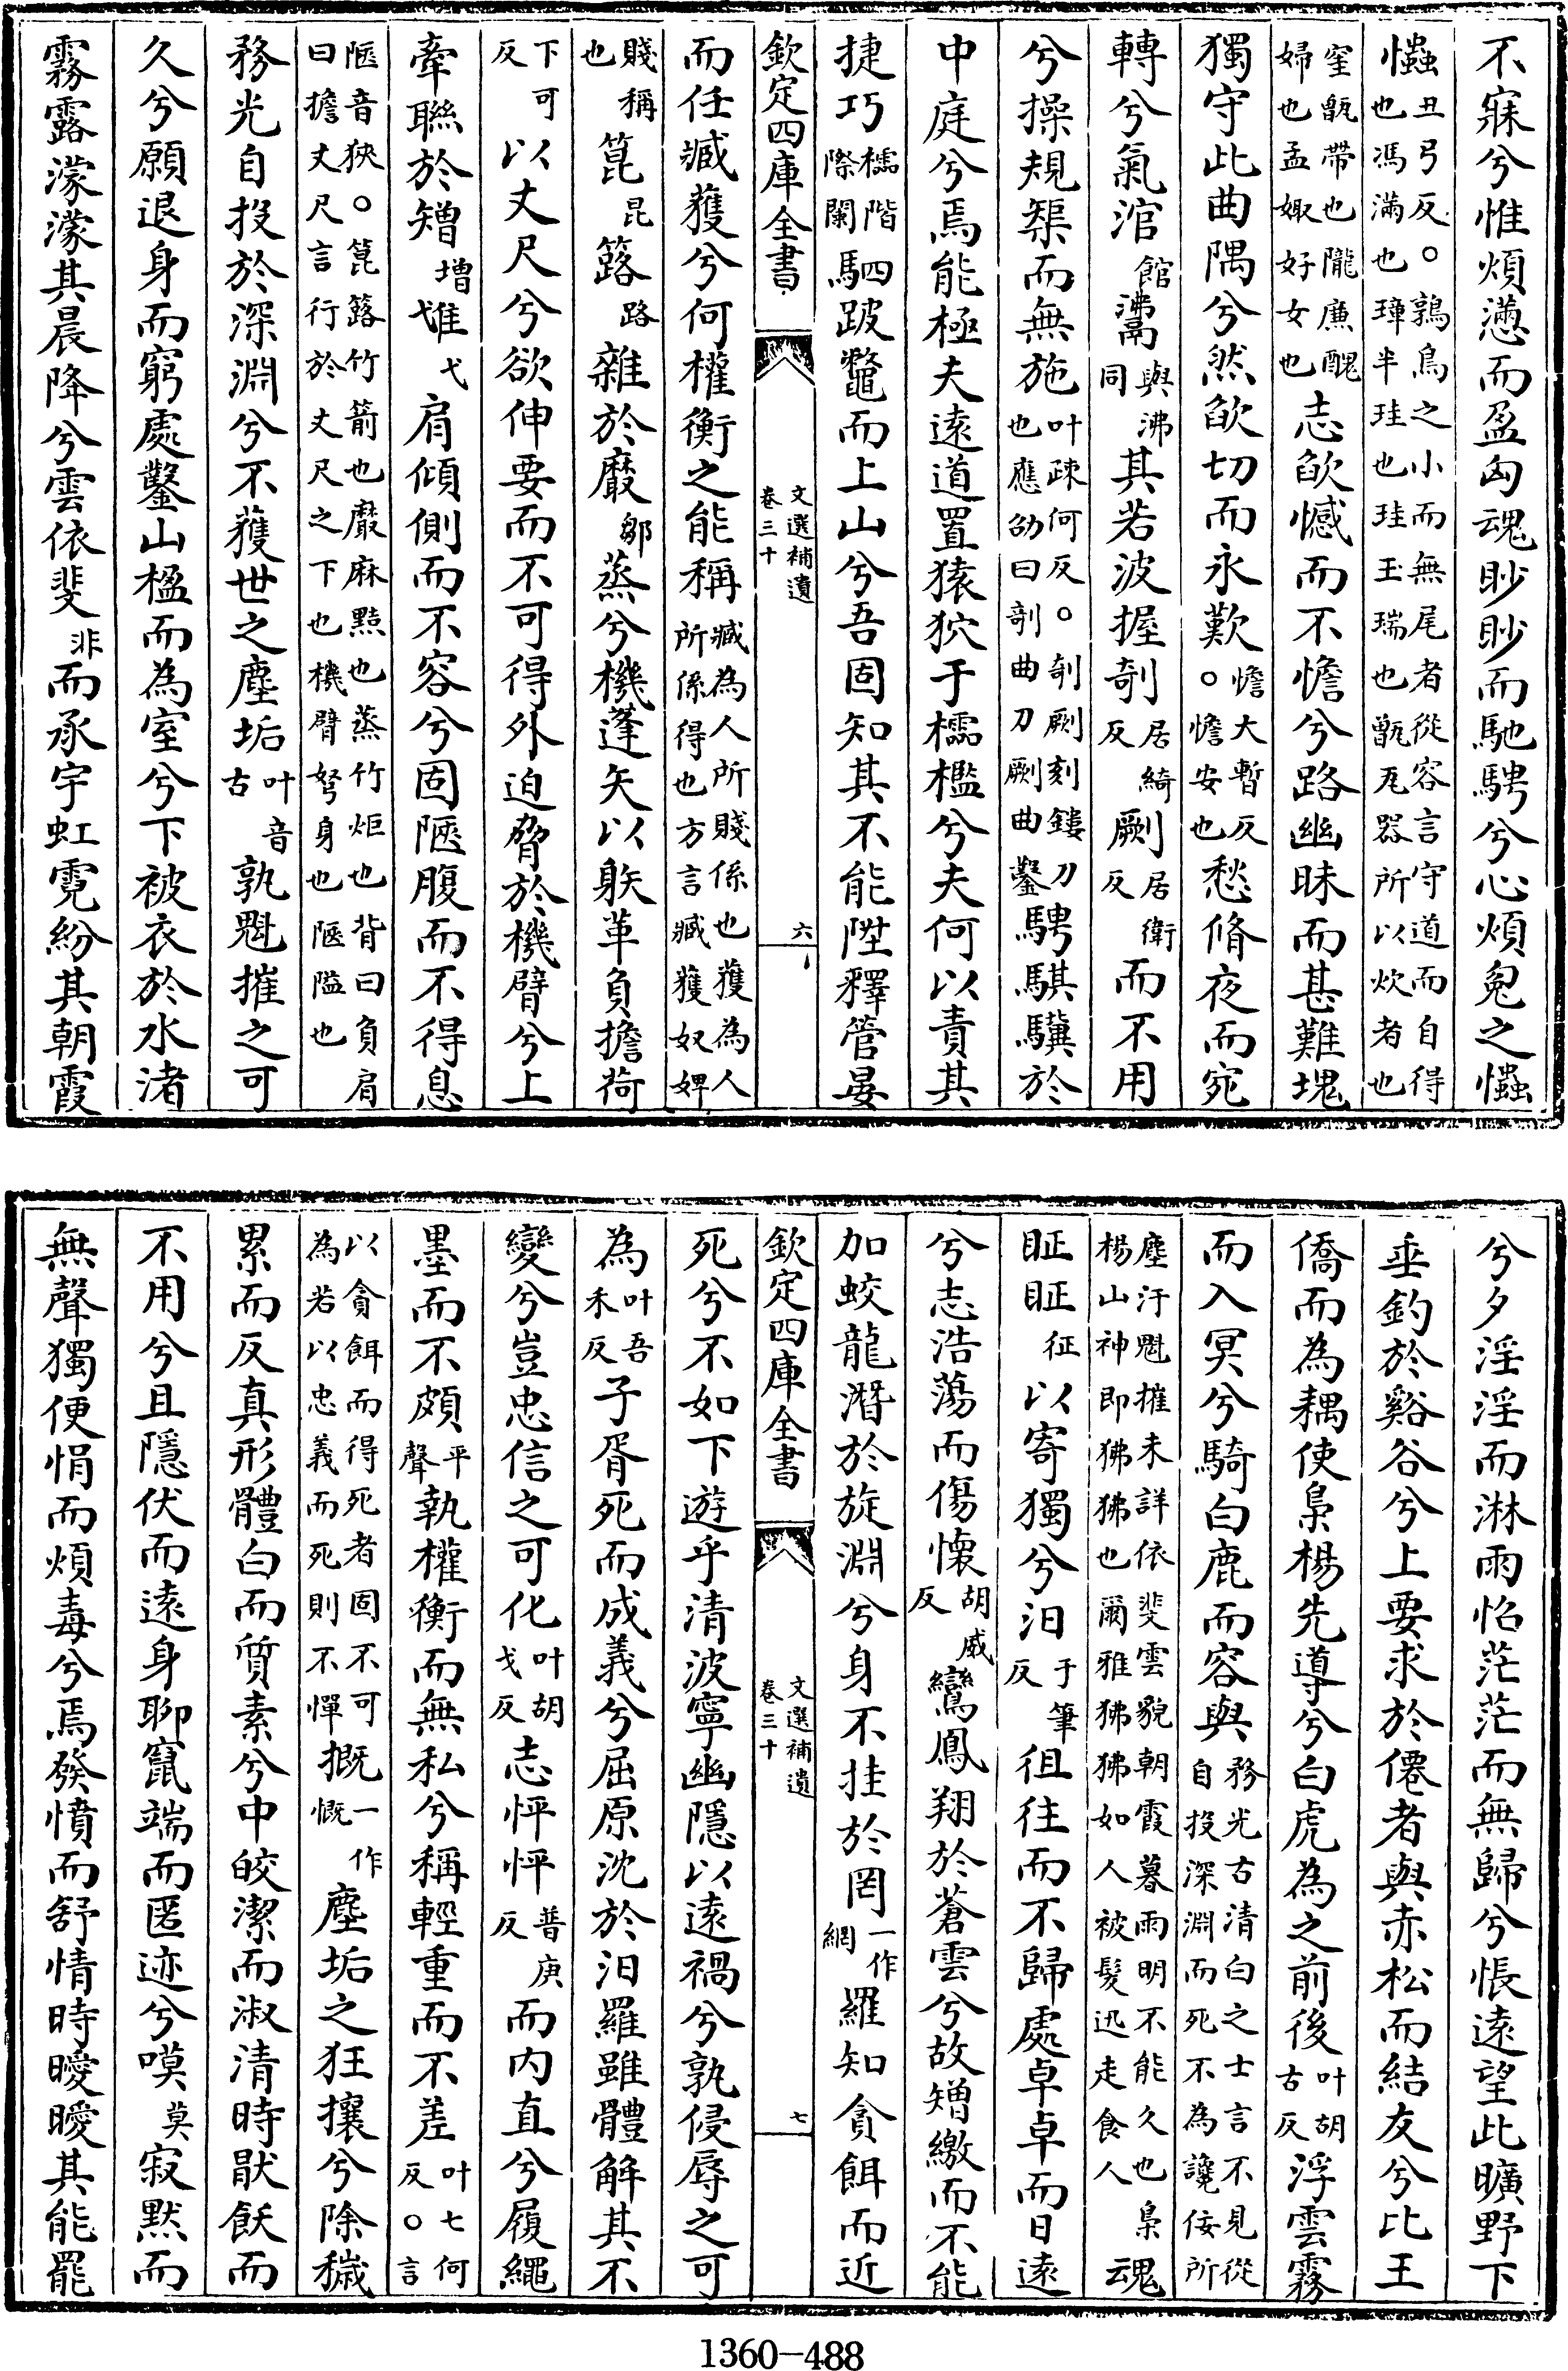 不寐兮惟煩懣而盈匈魂眇眇而馳騁兮心煩冤之忡
忡丑弓反。鶉鳥之小而無尾者從容言守道而自得也馮滿也璋半珪也珪玉瑞也甑瓦器所以炊者也
窐甑帶也隴廉醜婦也孟娵好女也志欿憾而不憺兮路幽昧而甚難塊
獨守此曲隅兮然欿切而永歎。憺大暫反。憺安也愁脩夜而宛
轉兮氣涫館㵒與沸同其若波握剞居綺反劂居衛反而不用
兮操規榘而無施叶疎何反。剞劂刻鏤刀也應劭曰剞曲刀劂曲鑿騁騏驥於
中庭兮焉能極夫遠道置猿狖于櫺檻兮夫何以責其
捷巧櫺階際闌駟四跛鼈而上山兮吾固知其不能陞釋管晏
欽定四庫全書 文選補遺 卷三十 六
而任臧獲兮何權衡之能稱臧為人所賤係也獲為人所係得也方言臧獲奴婢
賤稱也箟昆簬路雜於黀鄒蒸兮機蓬矢以躲革負擔荷
下可反以丈尺兮欲伸要而不可得外迫脅於機臂兮上
牽聯於矰增隿弋肩傾側而不容兮固陿腹而不得息
陿音狹。箟簬竹箭也黀麻黠也蒸竹炬也背曰負肩曰擔丈尺言行於丈尺之下也機臂弩身也陿隘也
務光自投於深淵兮不獲世之塵垢叶音古孰魁摧之可
久兮願退身而窮處鑿山楹而為室兮下被衣於水渚
霧露濛濛其晨降兮雲依斐非而承宇虹霓紛其朝霞
兮夕淫淫而淋雨怊茫茫而無歸兮悵遠望此曠野下
垂釣於谿谷兮上要求於僊者與赤松而結友兮比王
僑而為耦使梟楊先導兮白虎為之前後叶胡古反浮雲霧
而入冥兮騎白鹿而容與務光古清白之士言不見從自投深淵而死不為讒佞所
塵汙魁摧未詳依斐雲貌朝霞暮雨明不能久也梟楊山神即狒狒也爾雅狒狒如人被髮迅走食人魂
眐眐征以寄獨兮汨于筆反徂往而不歸處卓卓而日遠
兮志浩蕩而傷懷胡威反鸞鳳翔於蒼雲兮故矰繳而不能
加蛟龍潛於旋淵兮身不挂於罔一作網羅知貪餌而近
欽定四庫全書 文選補遺 卷三十 七
死兮不如下遊乎清波寧幽隱以遠禍兮孰侵辱之可
為叶吾禾反子胥死而成義兮屈原沈於汨羅雖體解其不
變兮豈忠信之可化叶胡戈反志怦怦普庚反而内直兮履繩
墨而不頗平聲執權衡而無私兮稱輕重而不差叶七何反。言
以貪餌而得死者固不可為若以忠義而死則不憚摡一作慨塵垢之狂攘兮除穢
累而反真形體白而質素兮中皎潔而淑清時猒飫而
不用兮且隱伏而遠身聊竄端而匿迹兮嘆莫寂默而
無聲獨便悁而煩毒兮焉發憤而舒情時曖曖其能罷
1360-488